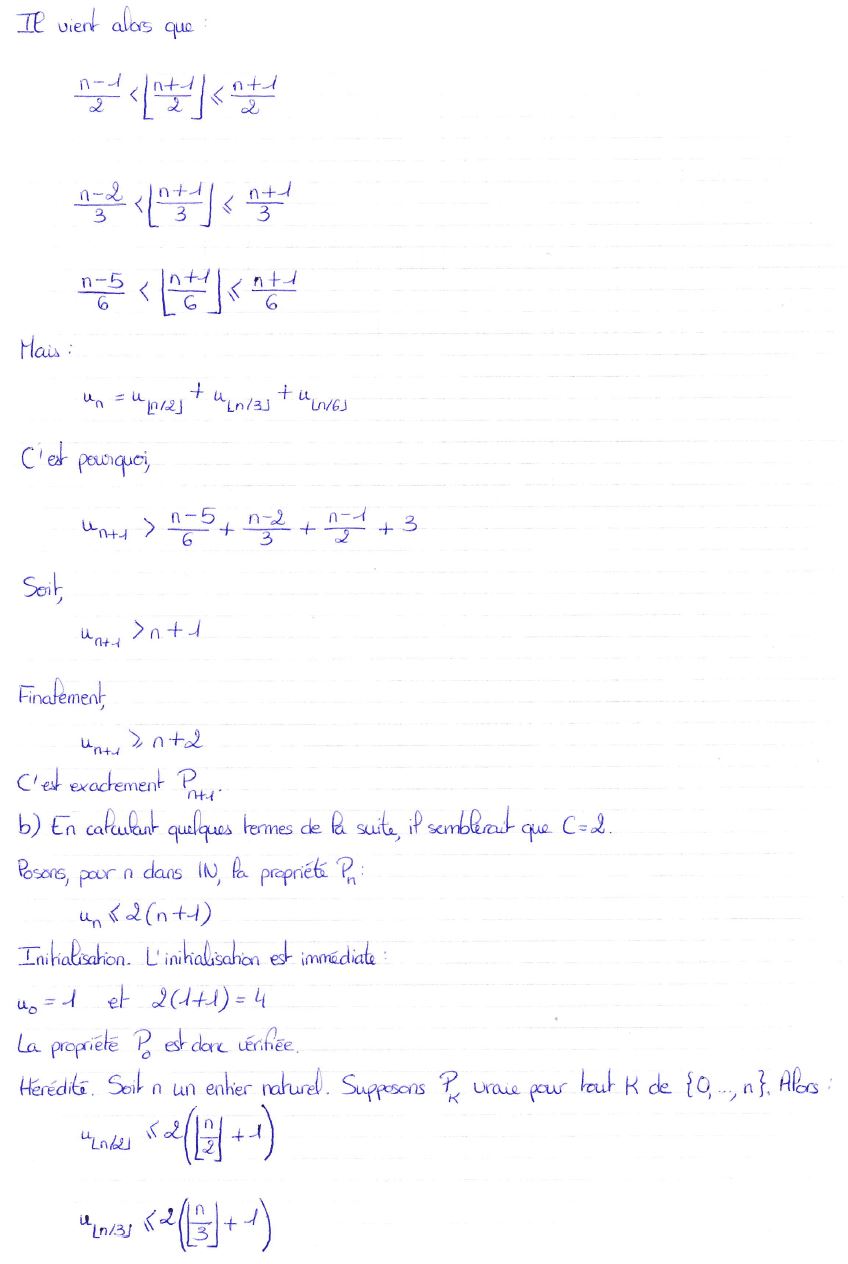 Il vient alors que :
n-1/2 < ⌊n+1/2⌋ ⩽ n+1/2
n-2/3 < ⌊n+1/3⌋ ⩽ n+1/3
n-5/6 < ⌊n+1/6⌋ ⩽ n+1/6
Mais :
u_n = u_⌊n/2⌋ + u_⌊n/3⌋ + u_⌊n/6⌋
C'est pourquoi,
u_{n+1} > n-5/6 + n-2/3 + n-1/2 + 3
Soit,
u_{n+1} > n+1
Finalement,
u_{n+1} ⩾ n+2
C'est exactement P_{n+1}.
b) En calculant quelques termes de la suite, il semblerait que C=2.
Posons, pour n dans IN, la propriété P_n :
u_n ⩽ 2(n+1)
Initialisation. L'initialisation est immédiate :
u_0 = 1 et 2(1+1) = 4
La propriété P_0 est donc vérifiée.
Hérédité. Soit n un entier naturel. Supposons P_K vraie pour tout K de {0, ..., n}. Alors :
u_⌊n/2⌋ ⩽ 2(⌊n/2⌋ + 1)
u_⌊n/3⌋ ⩽ 2(⌊n/3⌋ + 1)